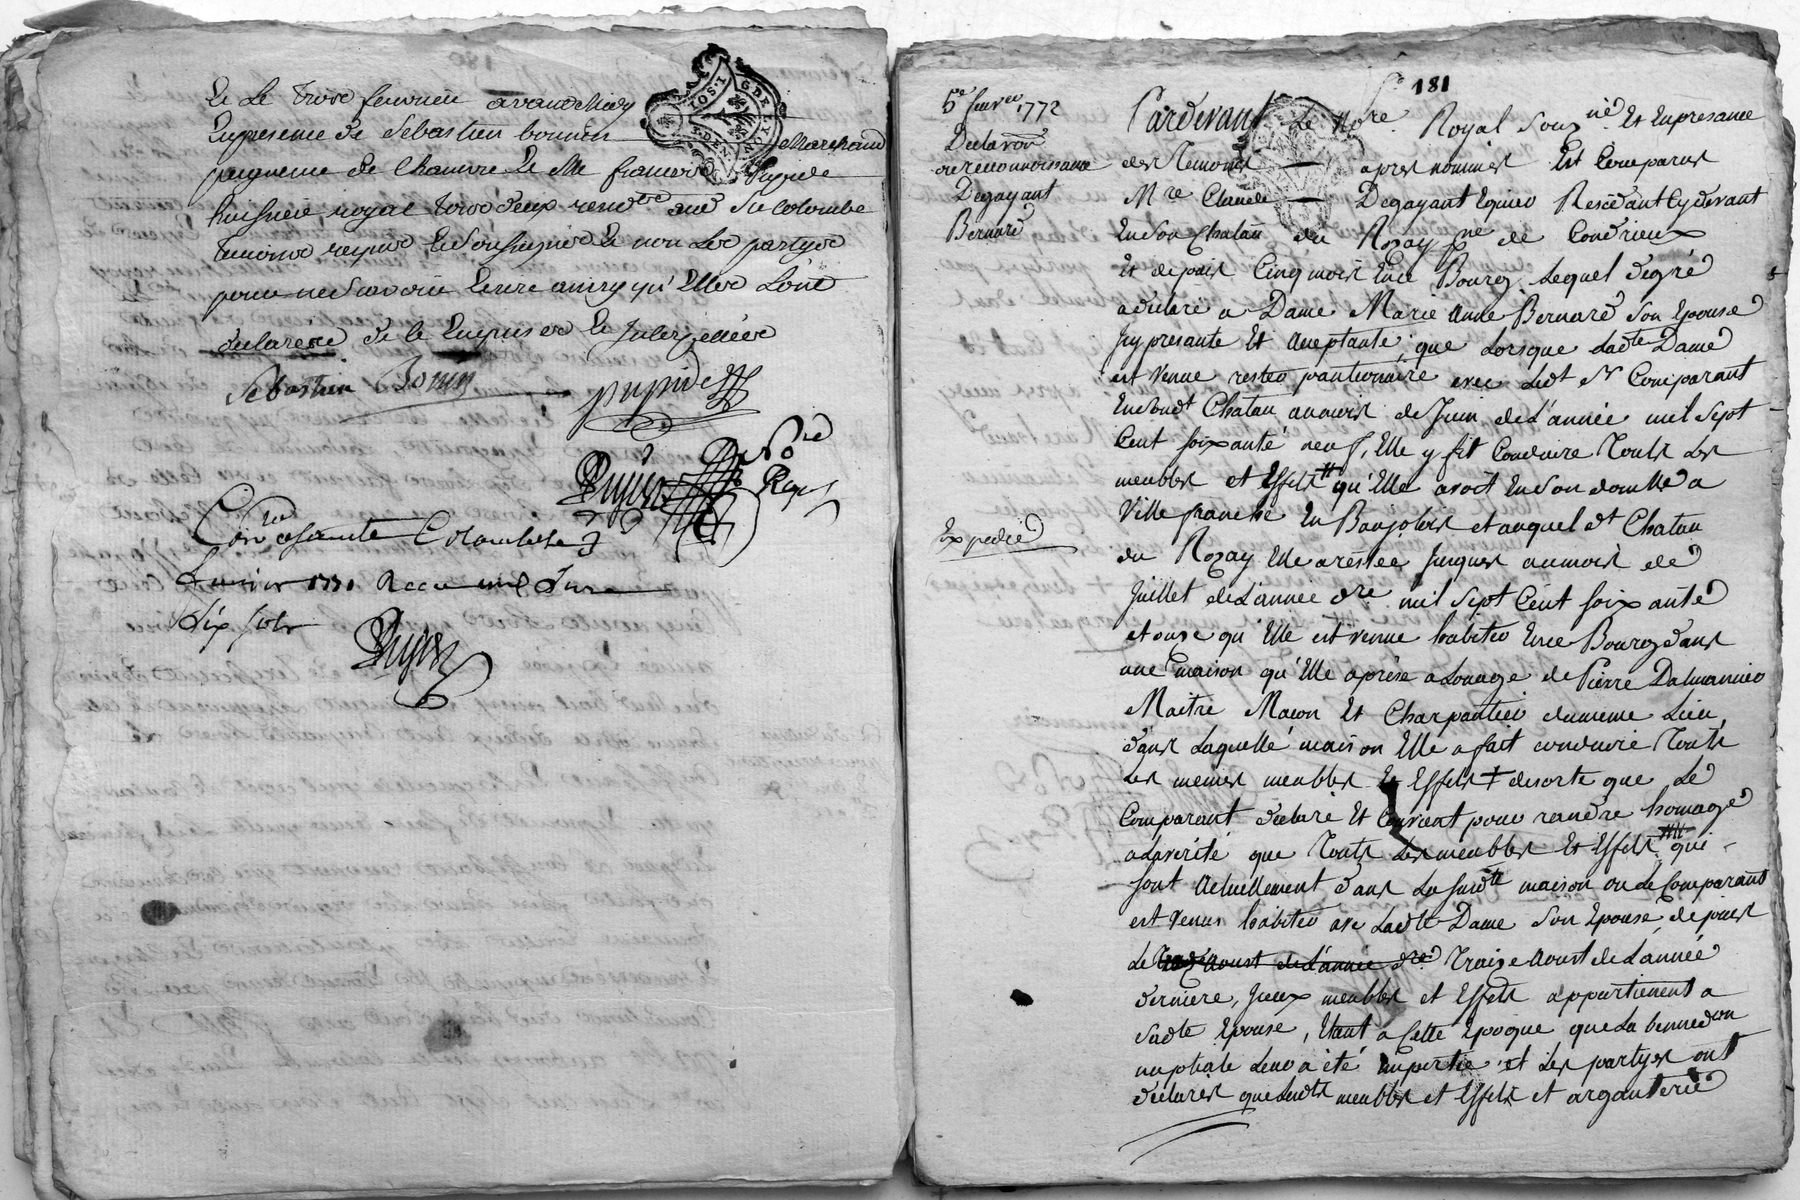 Et Le Trois fevrier avant Midy
En presence de Sebastien bonnin Marchand
peigneur de Chanvre Et Me francois Pupide
huissier royal tous deux ste Colombe
Temoins requis Et Soussignés Et non Les partyes
pour ne Scavoir Ecrire ainsy qu'Elles L'ont
declarees de le Enquises Et Interpellées
Sebastien Bonin
pupide
Dujen No Roy
Con a Sainte Colombe Le 3
fevrier 177 Receu
dix sols
Dujen
181
5e fevrer 1772
Declaron
ou reconnoissance
Degayant
Bernard
Expedié
Pardevant Le nore Royal Souzné Et En presance
des Temoins apres nommés Est Comparus
Mre Claude Degayant Equier Residant Cydevant
En Son Chatau du Rozay pne de Condrieux
Et depuis Cinq mois En ce Bourg. Lequel de gré
a declaré a Dame Marie Anne Bernard Son Epouse
Icy presante Et aceptante que Lorsque Ladte Dame
est venue rester pantionnaire avec Ledt Sr Comparant
En Sondt Chatau au mois de Juin de L'année mil Sept
Cent soixante neuf, Elle y fit Conduire Touts Les
meubles et Effets qu'Elle avoit En Son domlle a
Ville franche En Baujolois et auquel dt Chatau
du Rozay Elle a restee Jusques au mois de
Juillet de L'année dre mil Sept Cent soixante
et onze qu'Elle est venue habiter En ce Bourg dans
une maison qu'Elle a prise a Louage de Pierre Dalmannier
Maitre Macon Et Charpantier du meme Lieu,
dans Laquelle maison Elle a fait conduire Touts
Les memes meubles Et Effets + de sorte que Le
Comparant declare Et Convient pour randre homage
a La verité que Touts Les meubles Et Effets qui
sont Actuellement dans La Susdte maison ou Le Comparant
est venus habiter avec Ladte Dame Son Epouse depuis
Le Aoust de L'année dre Traize Aoust de L'année
derniere, Iceux meubles et Effets appartienent a
Sadte Epouse, Etant a Cette Epoque que La benned on
nuptiale Leur a été Impertie et Les partyes ont
declarés que Lesdts meubles et Effets et arganterie